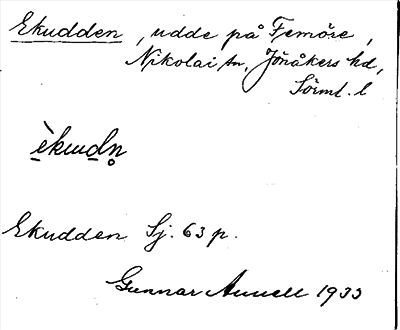 Ekudden, udde på Femöre,
Nikolai sn, Jönåkers hd,
Sörml. l
Ekudden Sj. 63 p.
Gunnar Annell 1933